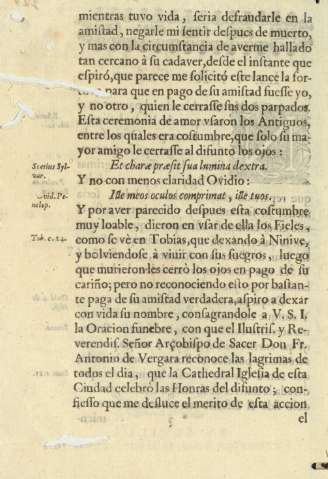 mientras tuvo vida, seria defraudarle en la
amistad, negarle mi sentir despues de muerto,
y mas con la circunstancia de averme hallado
tan cercano à su cadaver, desde el instante que
espirò, que parece me solicitò este lance la for-
para que en pago de su amistad fuesse yo,
y no otro, quien le cerrasse sus dos parpados.
Esta ceremonia de amor vsaron los Antiguos,
entre los quales era costumbre, que solo su ma-
yor amigo le cerrasse al difunto los ojos:
Statius Syl-
var.
Et charæ præsit sua lumina dextra.
Y no con menos claridad Ovidio:
Ovid. Pe-
nelop.
Ille meos oculos comprimat, ille tuos.
Y por aver parecido despues esta costumbre
muy loable, dieron en vsar de ella los Fieles,
Tob. c. 14.
como se vè en Tobias, que dexando à Ninive,
y bolviendose à viuir con sus suegros, luego
que murieron les cerrò los ojos en pago de su
cariño; pero no reconociendo esto por bastan-
te paga de su amistad verdadera, aspiro a dexar
con vida su nombre, consagrandole a V. S. I.
la Oracion funebre, con que el Ilustris. y Re-
verendis. Señor Arçobispo de Sacer Don Fr.
Antonio de Vergara reconoce las lagrimas de
todos el dia, que la Cathedral Iglesia de esta
Ciudad celebrò las Honras del difunto; con-
fiesso que me desluce el merito de esta accion
el